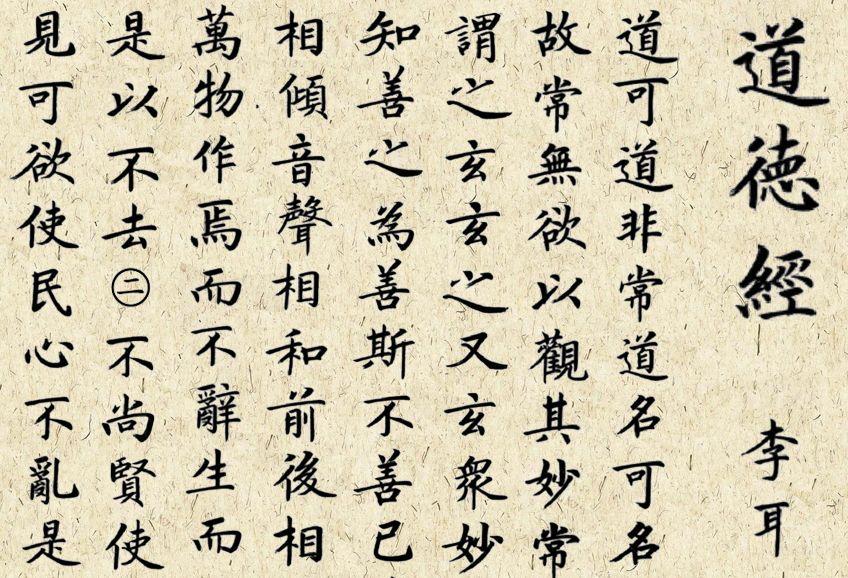 道德經 李耳
道可道非常道名可名
故常無欲以觀其妙常
謂之玄玄之又玄衆妙
知善之為善斯不善已
相傾音聲相和前後相
萬物作焉而不辭生而
是以不去㊁不尚賢使
見可欲使民心不亂是